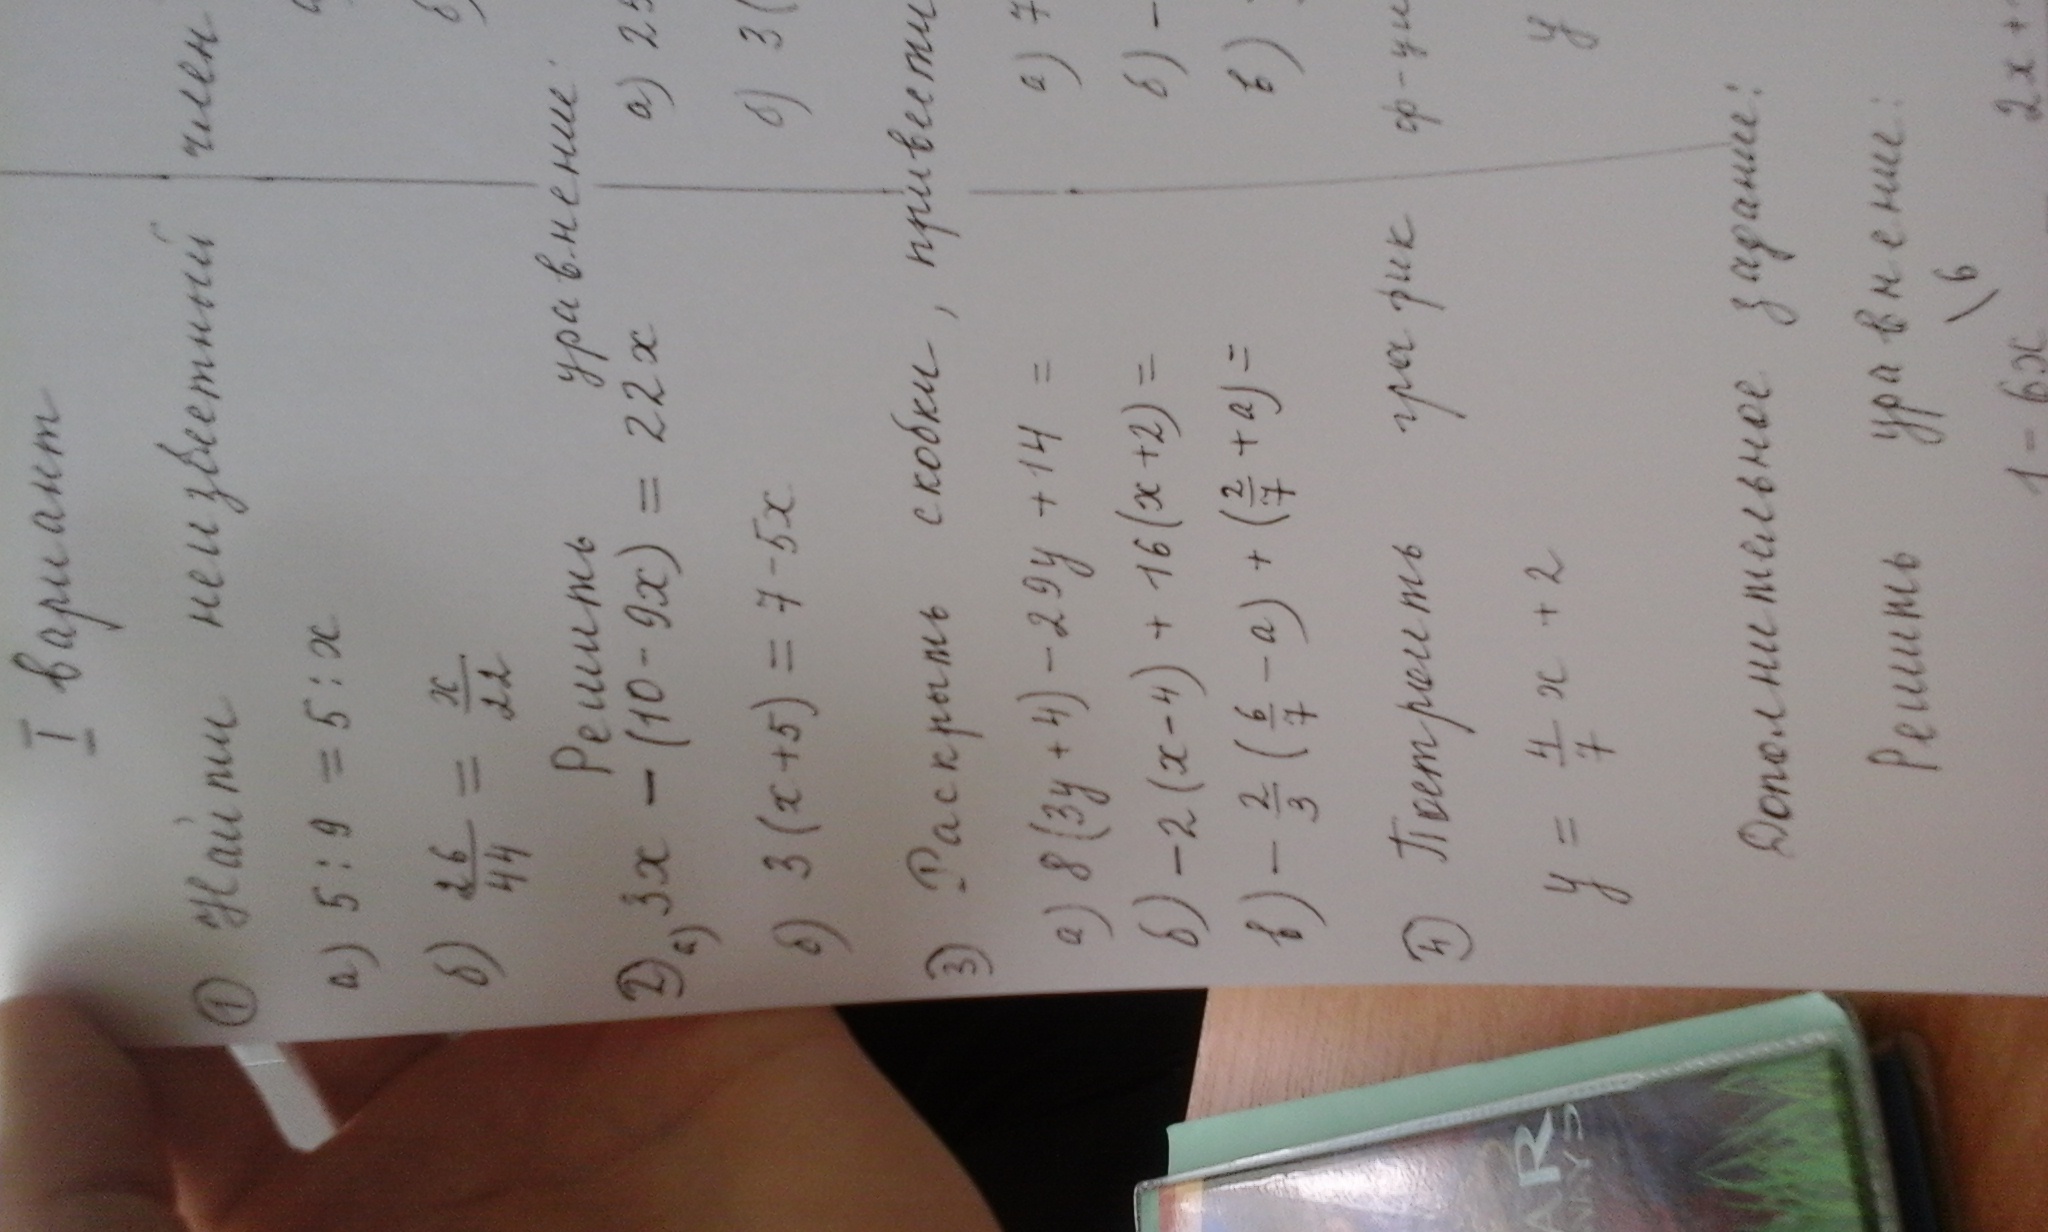 I вариант
① Найти неизвестный член
а) 5 : 9 = 5 : x
б) 26/44 = x/22
Решить уравнение:
② а) 3x - (10 - 9x) = 22x
а) 25
б) 3(x+5) = 7 - 5x
б) 3(
③ Раскрыть скобки, привести
а) 8(3y+4) - 29y + 14 =
а) 7
б) -2(x-4) + 16(x+2) =
б) -
в) - 2/3 (6/7 - a) + (2/7 + a) =
в)
④ Построить график ф-ции
y = 4/7 x + 2
y
Дополнительное задание:
Решить уравнение:
\6
1 - 6x
2x +
AR
NAY